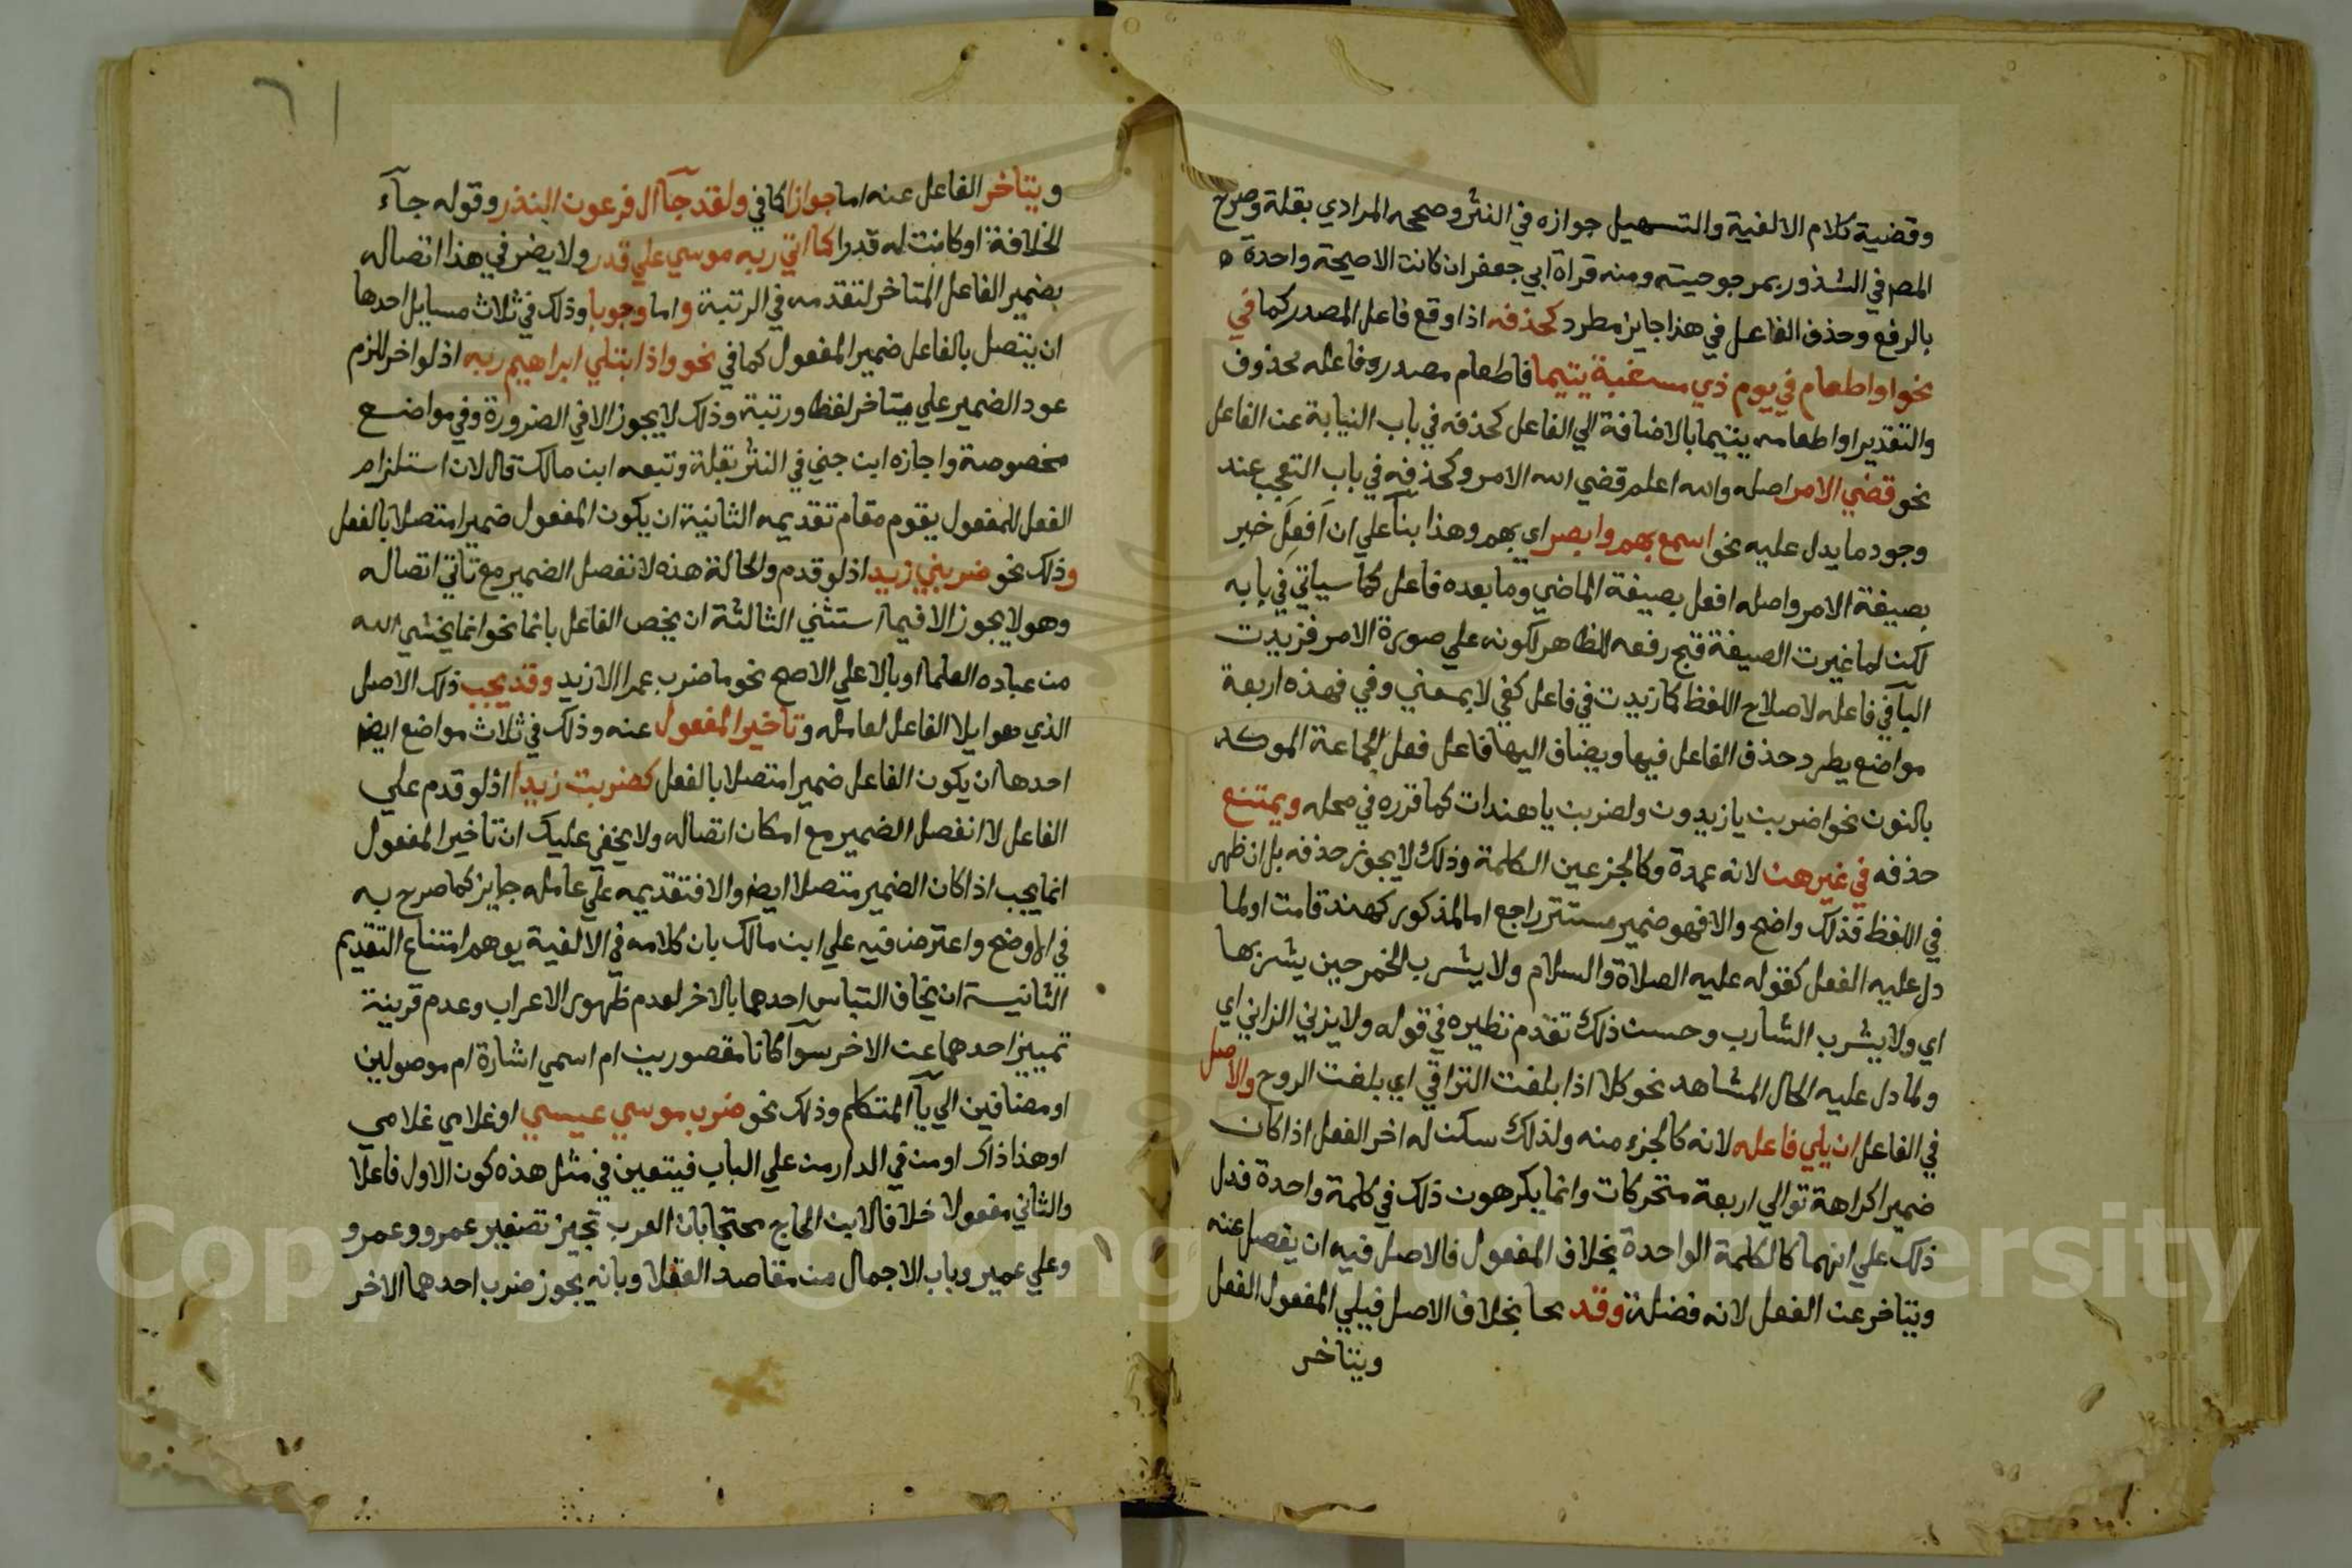 وقضية كلام الالفية والتسهيل جوازه في النثر وصححه المرادي بقلة وصرح
المص في الشذور بمرجوحيته ومنه قراة ابي جعفر ان كانت الاصيحة واحدة
بالرفع وحذف الفاعل في هذا جايز مطرد كحذفه اذا وقع فاعل المصدر كما في
نحو او اطعام في يوم ذي مسغبة يتيما فاطعام مصدر وفاعله محذوف
والتقدير او اطعامه يتيما بالاضافة الي الفاعل كحذفه في باب النيابة عن الفاعل
نحو قضي الامر اصله والله اعلم قضي الله الامر وكحذفه في باب التعجب عند
وجود ما يدل عليه نحو اسمع بهم وابصر اي بهم وهذا بنآ علي ان اَفعِل خبر
بصيغة الامر واصله افعل بصيغة الماضي وما بعده فاعل كما سياتي في بابه
لكن لما غيرت الصيغة قبح رفعه الظاهر لكونه علي صورة الامر فزيدت
البآ في فاعله لاصلاح اللفظ كما زيدت في فاعل كفي لا بمعني وفي فهذه اربعة
مواضع يطرد حذف الفاعل فيها ويضاف اليها فاعل فعل الجماعة الموكد
بالنون نحو اضربن يا زيدون ولضربن يا هندات كما قرره في محله ويمتنع
حذفه في غيرهن لانه عمدة وكالجز عين الكلمة وذلك لا يجوز حذفه بل ان ظهر
في اللفظ فذلك واضح والا فهو ضمير مستتر راجع اما المذكور كهند قامت او لما
دل عليه الفعل كقوله عليه الصلاة والسلام ولا يشرب الخمر حين يشربها
اي ولا يشرب الشارب وحسن ذلك تقدم نظيره في قوله ولا يزني الزاني اي
ولما دل عليه الحال المشاهد نحو كلا اذا بلغت التراقي اي بلغت الروح والاصل
في الفاعل ان يلي فاعله لانه كالجزء منه ولذلك سكن له اخر الفعل اذا كان
ضميرا كراهة توالي اربعة متحركات وانما يكرهون ذلك في كلمة واحدة فدل
ذلك علي انهما كالكلمة الواحدة بخلاف المفعول فالاصل فيه ان يفصل عنه
ويتاخر عن الفعل لانه فضلة وقد بخلاف الاصل فيلي المفعول الفعل
ويتاخر
ويتاخر الفاعل عنه اما جوازا كما في ولقد جآ ال فرعون النذر وقوله جآء
الخلافة او كانت له قدرا كما اتي ربه موسي علي قدر ولا يضر في هذا اتصاله
بضمير الفاعل المتاخر لتقدمه في الرتبة واما وجوبا وذلك في ثلاث مسايل احدها
ان يتصل بالفاعل ضمير المفعول كما في نحو واذا ابتلي ابراهيم ربه اذ لو اخر للزم
عود الضمير علي متاخر لفظا ورتبة وذلك لا يجوز الا في الضرورة وفي مواضع
مخصوصة واجازه ابن جني في النثر بقلة وتبعه ابن مالك قال لان استلزام
الفعل للمفعول يقوم مقام تقديمه الثانية ان يكون المفعول ضميرا متصلا بالفعل
وذلك نحو ضربني زيد اذ لو قدم والحالة هذه لانفصل الضمير مع تاتي اتصاله
وهو لا يجوز الا فيما استثني الثالثة ان يخص الفاعل بانما نحو انما يخشي الله
من عباده العلما او بالا علي الاصح نحو ما ضرب عمرا الا زيد وقد يجب ذلك الاصل
الذي هو ايلا الفاعل لعامله وتاخير المفعول عنه وذلك في ثلاث مواضع ايضا
احدها ان يكون الفاعل ضميرا متصلا بالفعل كضربت زيدا اذ لو قدم علي
الفاعل لانفصل الضمير مع امكان اتصاله ولا يخفي عليك ان تاخير المفعول
انما يجب اذا كان الضمير متصلا ايضا والا فتقديمه علي عامله جايز كما صرح به
في الاوضح واعترض فيه علي ابن مالك بان كلامه في الالفية يوهم امتناع التقديم
الثانية ان يخاف التباس احدهما بالاخر لعدم ظهور الاعراب وعدم قرينة
تمييز احدهما عن الاخر سوآ كانا مقصورين ام اسمي اشارة ام موصولين
او مضافين الي يآ المتكلم وذلك نحو ضرب موسي عيسي او غلامي غلامي
او هذا ذاك او من في الدار من علي الباب فيتعين في مثل هذه كون الاول فاعلا
والثاني مفعولا خلافا لابن الحاج محتجا بان العرب تجيز تصغير عمرو وعمرو
وعلي عمير وباب الاجمال من مقاصد العقلا وبانه يجوز ضرب احدهما الاخر
Copyright © King Saud University